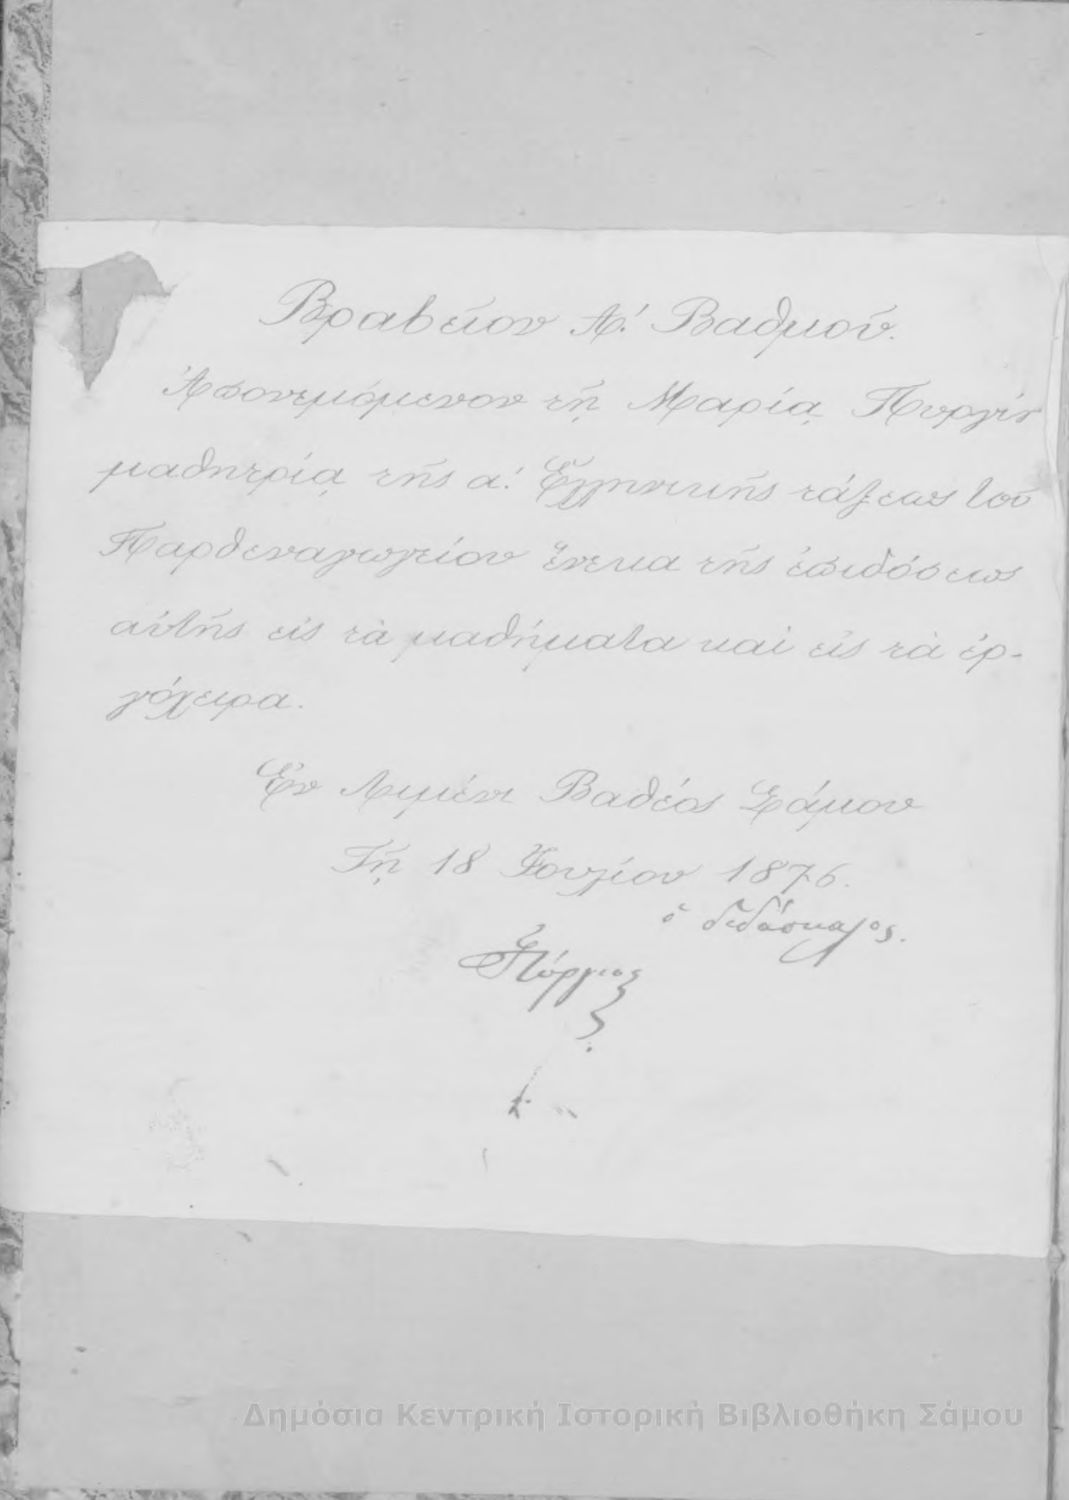 Βραβεῖον Α.' Βαθμοῦ.
Ἀπονεμόμενον τῇ Μαρίᾳ
μαθητρίᾳ τῆς α.' Ἑλληνικῆς τάξεως τοῦ
Παρθεναγωγείου ἕνεκα τῆς ἐπιδόσεως
αὐτῆς εἰς τὰ μαθήματα καὶ εἰς τὰ ἐρ-
γόχειρα.
Ἐν Λιμένι Βαθέος Σάμου
Τῇ 18 Ἰουλίου 1876.
ὁ διδάσκαλος.
Δημόσια Κεντρική Ιστορική Βιβλιοθήκη Σάμου